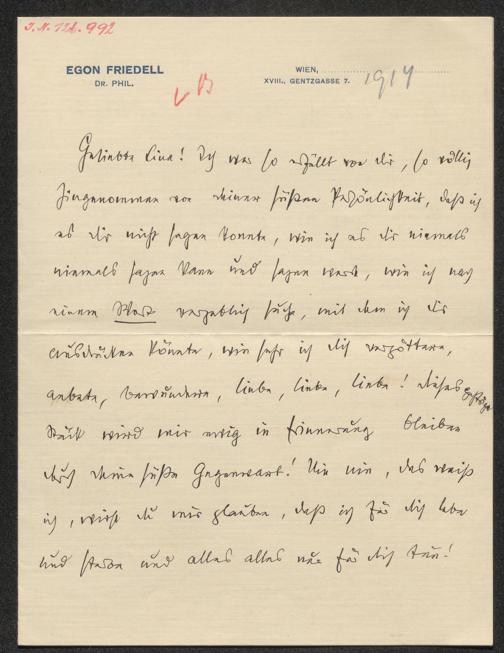 I.N. 126.992
EGON FRIEDELL
DR. PHIL.
WIEN,
XVIII., GENTZGASSE 7.
1914
Geliebte Lina! Ich war so erfüllt von dir, so völlig
hingenommen von deiner süßen Persönlichkeit, daß ich
es dir nicht sagen konnte, wie ich es dir niemals
niemals sagen kann und sagen werde, wie ich nach
einem Wort vergeblich suche, mit dem ich dir
ausdrücken könnte, wie sehr ich dich vergöttere,
anbete, bewundere, liebe, liebe, liebe! dieses
Stück wird mir ewig in Erinnerung bleiben
durch deine süße Gegenwart! Nie nie, das weiß
ich, wirst du mir glauben, daß ich für dich lebe
und sterbe und alles alles nur für dich tue!